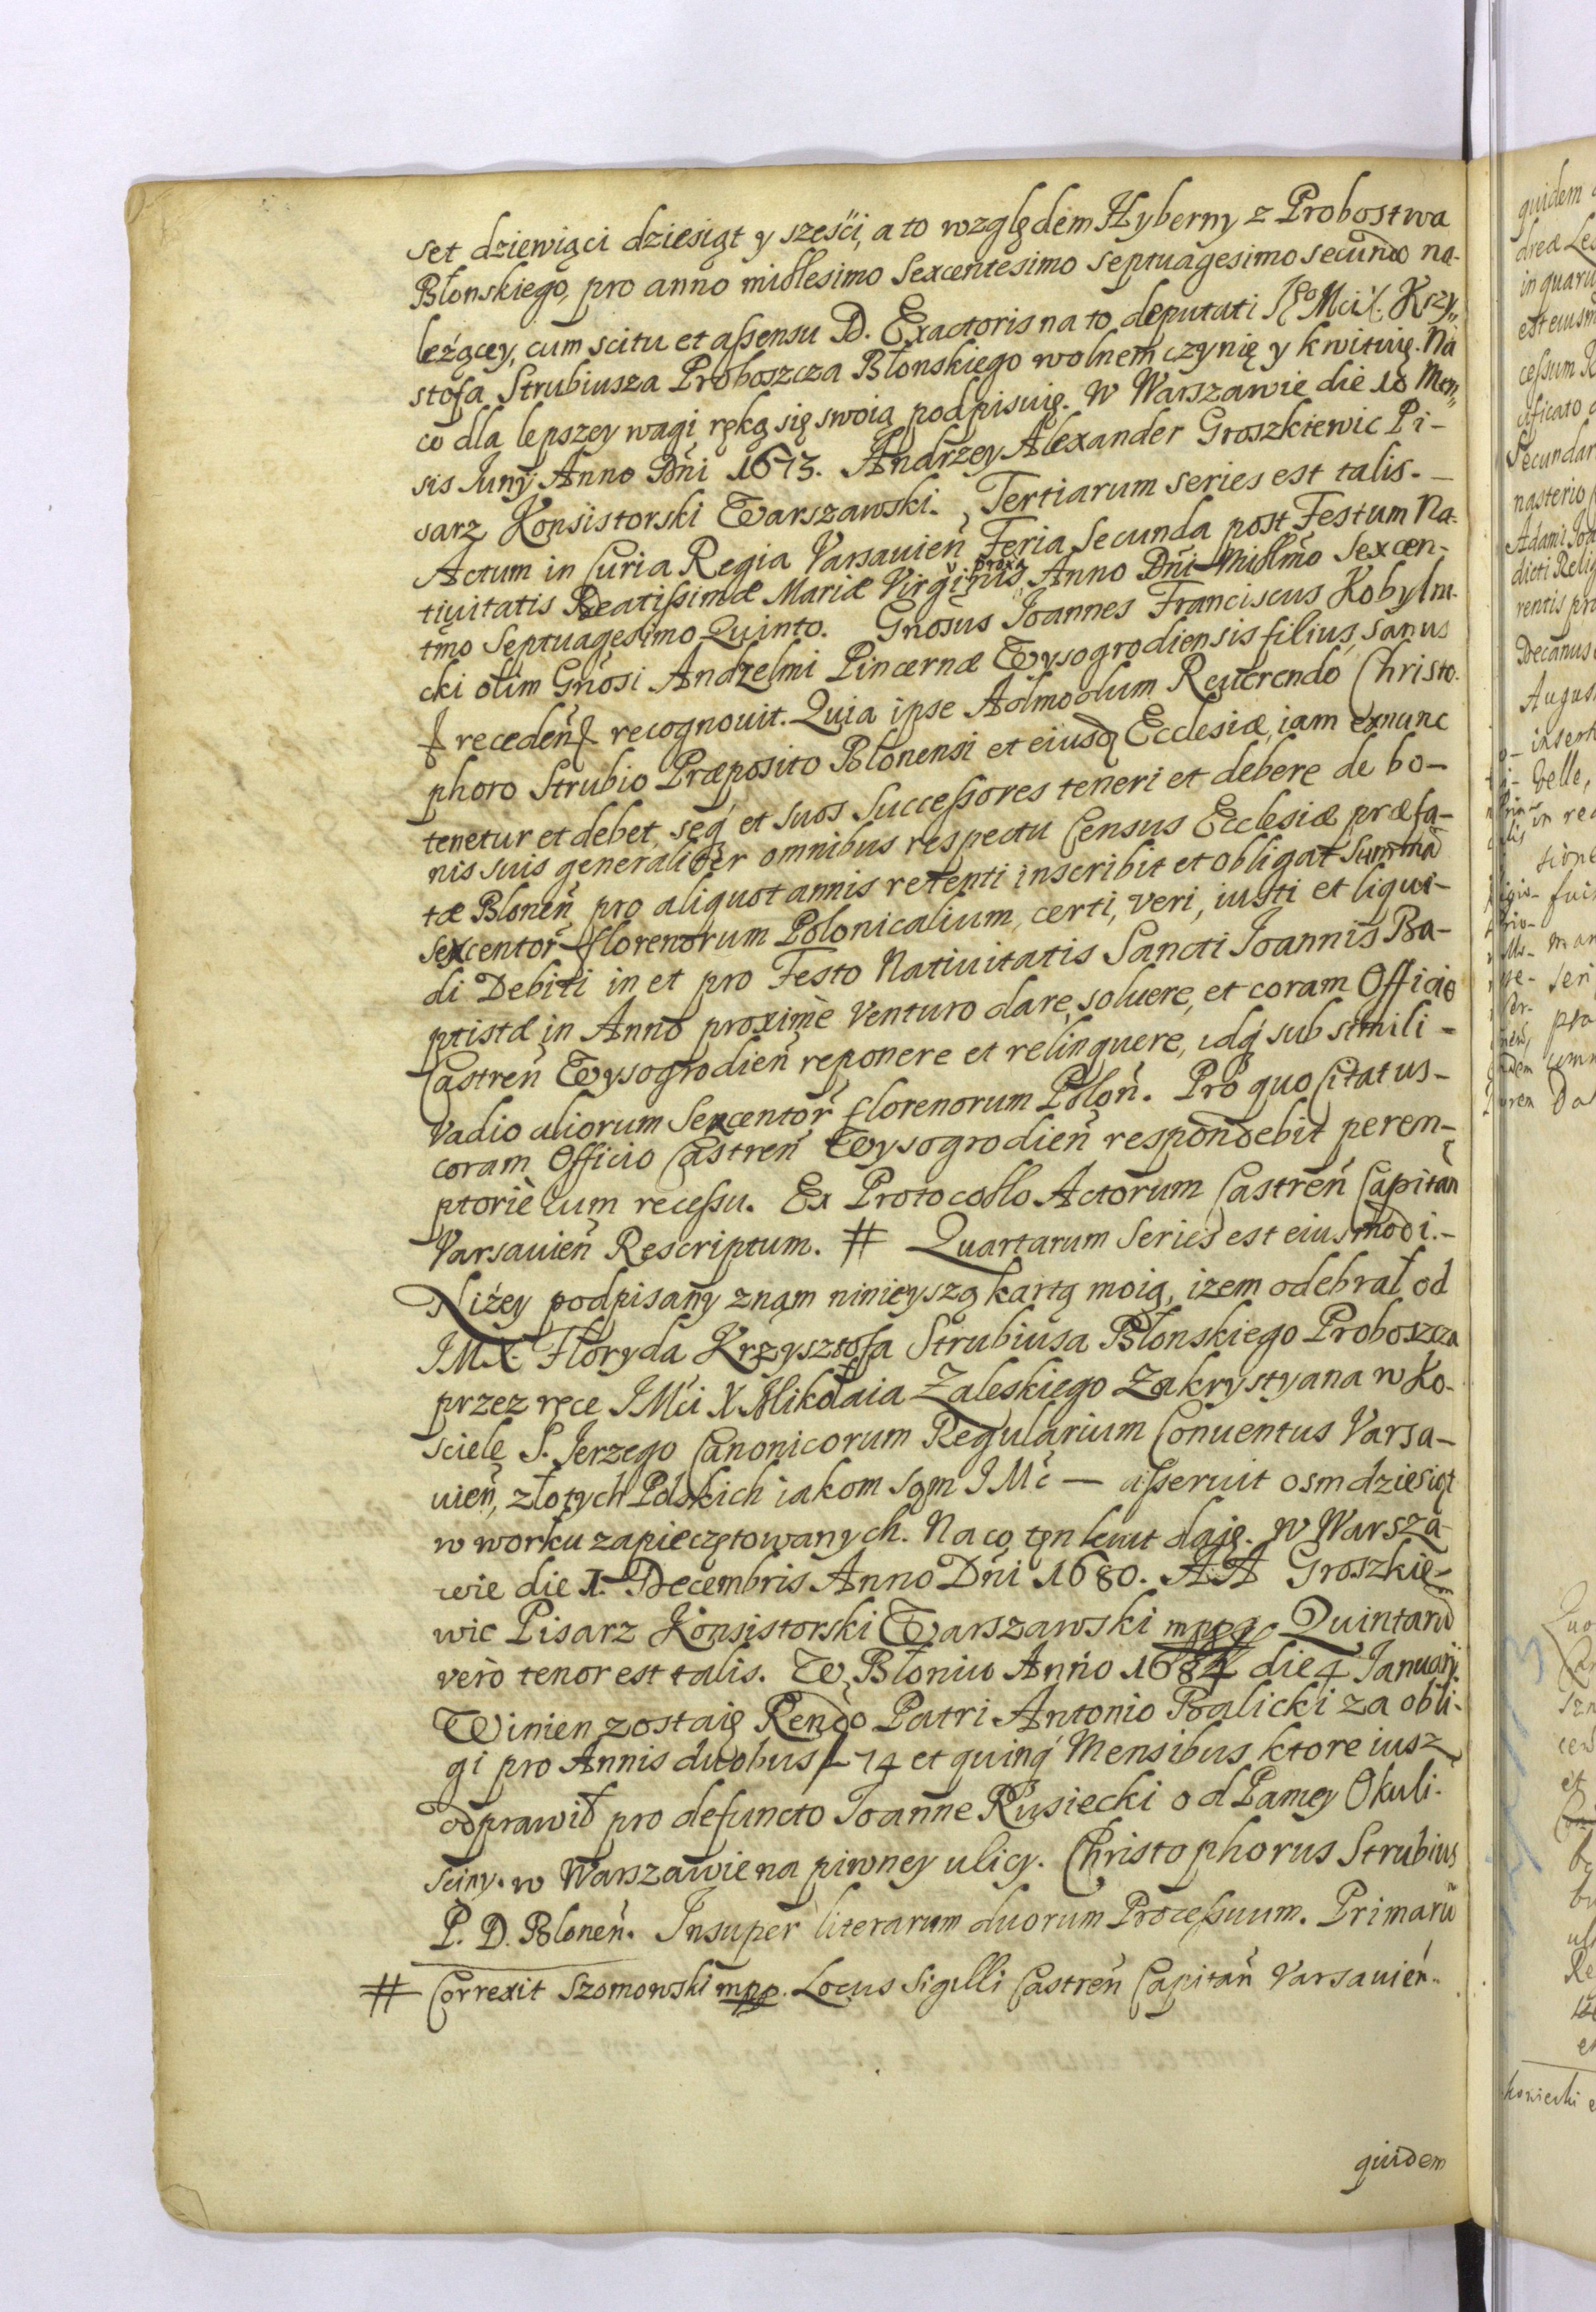 set dziewiąci dziesiąt y szesći, a to względem Hyberny z Probostwa
Błonskiego, pro anno millesimo Sexcentesimo Septuagesimo secundo na-
leżącey, cum scitu et assensu D. Exactoris na to deputati Jego Mci X. Krzy„
stofa Strubiusza Proboszcza Błonskiego wolnem czynię y kwituię. Na
co dla lepszey wagi ręką się swoią podpisuię. W Warszawie die 10 Men„
sis Junÿ Anno Dñi 1673. Andrzey Alexander Groszkiewic Pi-
sarz Konsistorski Warszawski. Tertiarum series est talis. -
Actum in Curia Regia Varsavień Feria Secunda post Festum Na-
tiuitatis Beatissimæ Mariæ Virginis proxa Anno Dñi Millmo Sexcen-
tmo Septuagesimo Quinto. Gnosus Joannes Franciscus Kobylni-
cki olim Gnosi Andzelmi Pincernæ Wysogrodiensis filius, sanus
recedeñ recognouit. Quia ipse Admodum Reuerendo Christo-
phoro Strubio Præposito Blonensi et eiusq Ecclesiæ, iam exnunc
tenetur et debet, seq et suos Successores teneri et debere de bo-
nis suis generaliter omnibus respectu Census Ecclesiæ præfa-
tæ Bloneñ pro aliquot annis retenti inscribit et obligat Summa
sexcentor florenorum Polonicalium, certi, veri, iusti et liqui-
di Debiti in et pro Festo Natiuitatis Sancti Joannis Ba-
ptistæ in Anno proximè Venturo dare, soluere, et coram Officio
Castreñ Wysogrodieñ reponere et relinquere, idq sub simili -
Vadio aliorum Sexcentor florenorum Poloñ. Pro quo Citatus -
coram Officio Castreñ Wysogrodieñ respondebit perem-
ptoriè cum recessu. Ex Protocollo Actorum Castreñ Capitañ
Varsauieñ Rescriptum. # Quartarum Series est eiusmodi. -
Niżey podpisany znam ninieyszą kartą moią, izem odebrał od
JMX. Floryda Krzysztofa Strubiusa Błonskiego Proboszcza
przez ręce JMci X Mikołaia Zaleskiego Zakrystyana w Ko-
sciele S. Jerzego Canonicorum Regularium Conuentus Varsa-
uieñ, złotych Polskich iakom sąm JMć — asseruit osmdziesiąt
w worku zapieczętowanych. Na co tęn kwit daię. W Warsza-
wie die 1. Decembris Anno Dñi 1680. A.A Groszkie-
wic Pisarz Konsistorski Warszawski mppą Quintaru
verò tenor est talis. W Błoniu Anno 1684 die 4 Januarÿ
Winien zostaię Rendo Patri Antonio Balicki za obli-
gi pro Annis duobus f 74 et quinq Mensibus ktore iusz
odprawił pro defuncto Joanne Rusiecki od Pamey Okuli-
sciny. w Warszawie na piwney ulicy. Christophorus Strubius
P. D. Bloneñ. Insuper literarum duorum Processuum. Primarũ
# Correxit Szomowski mpp. Locus Sigilli Castreñ Capitañ Varsauień.
quidem